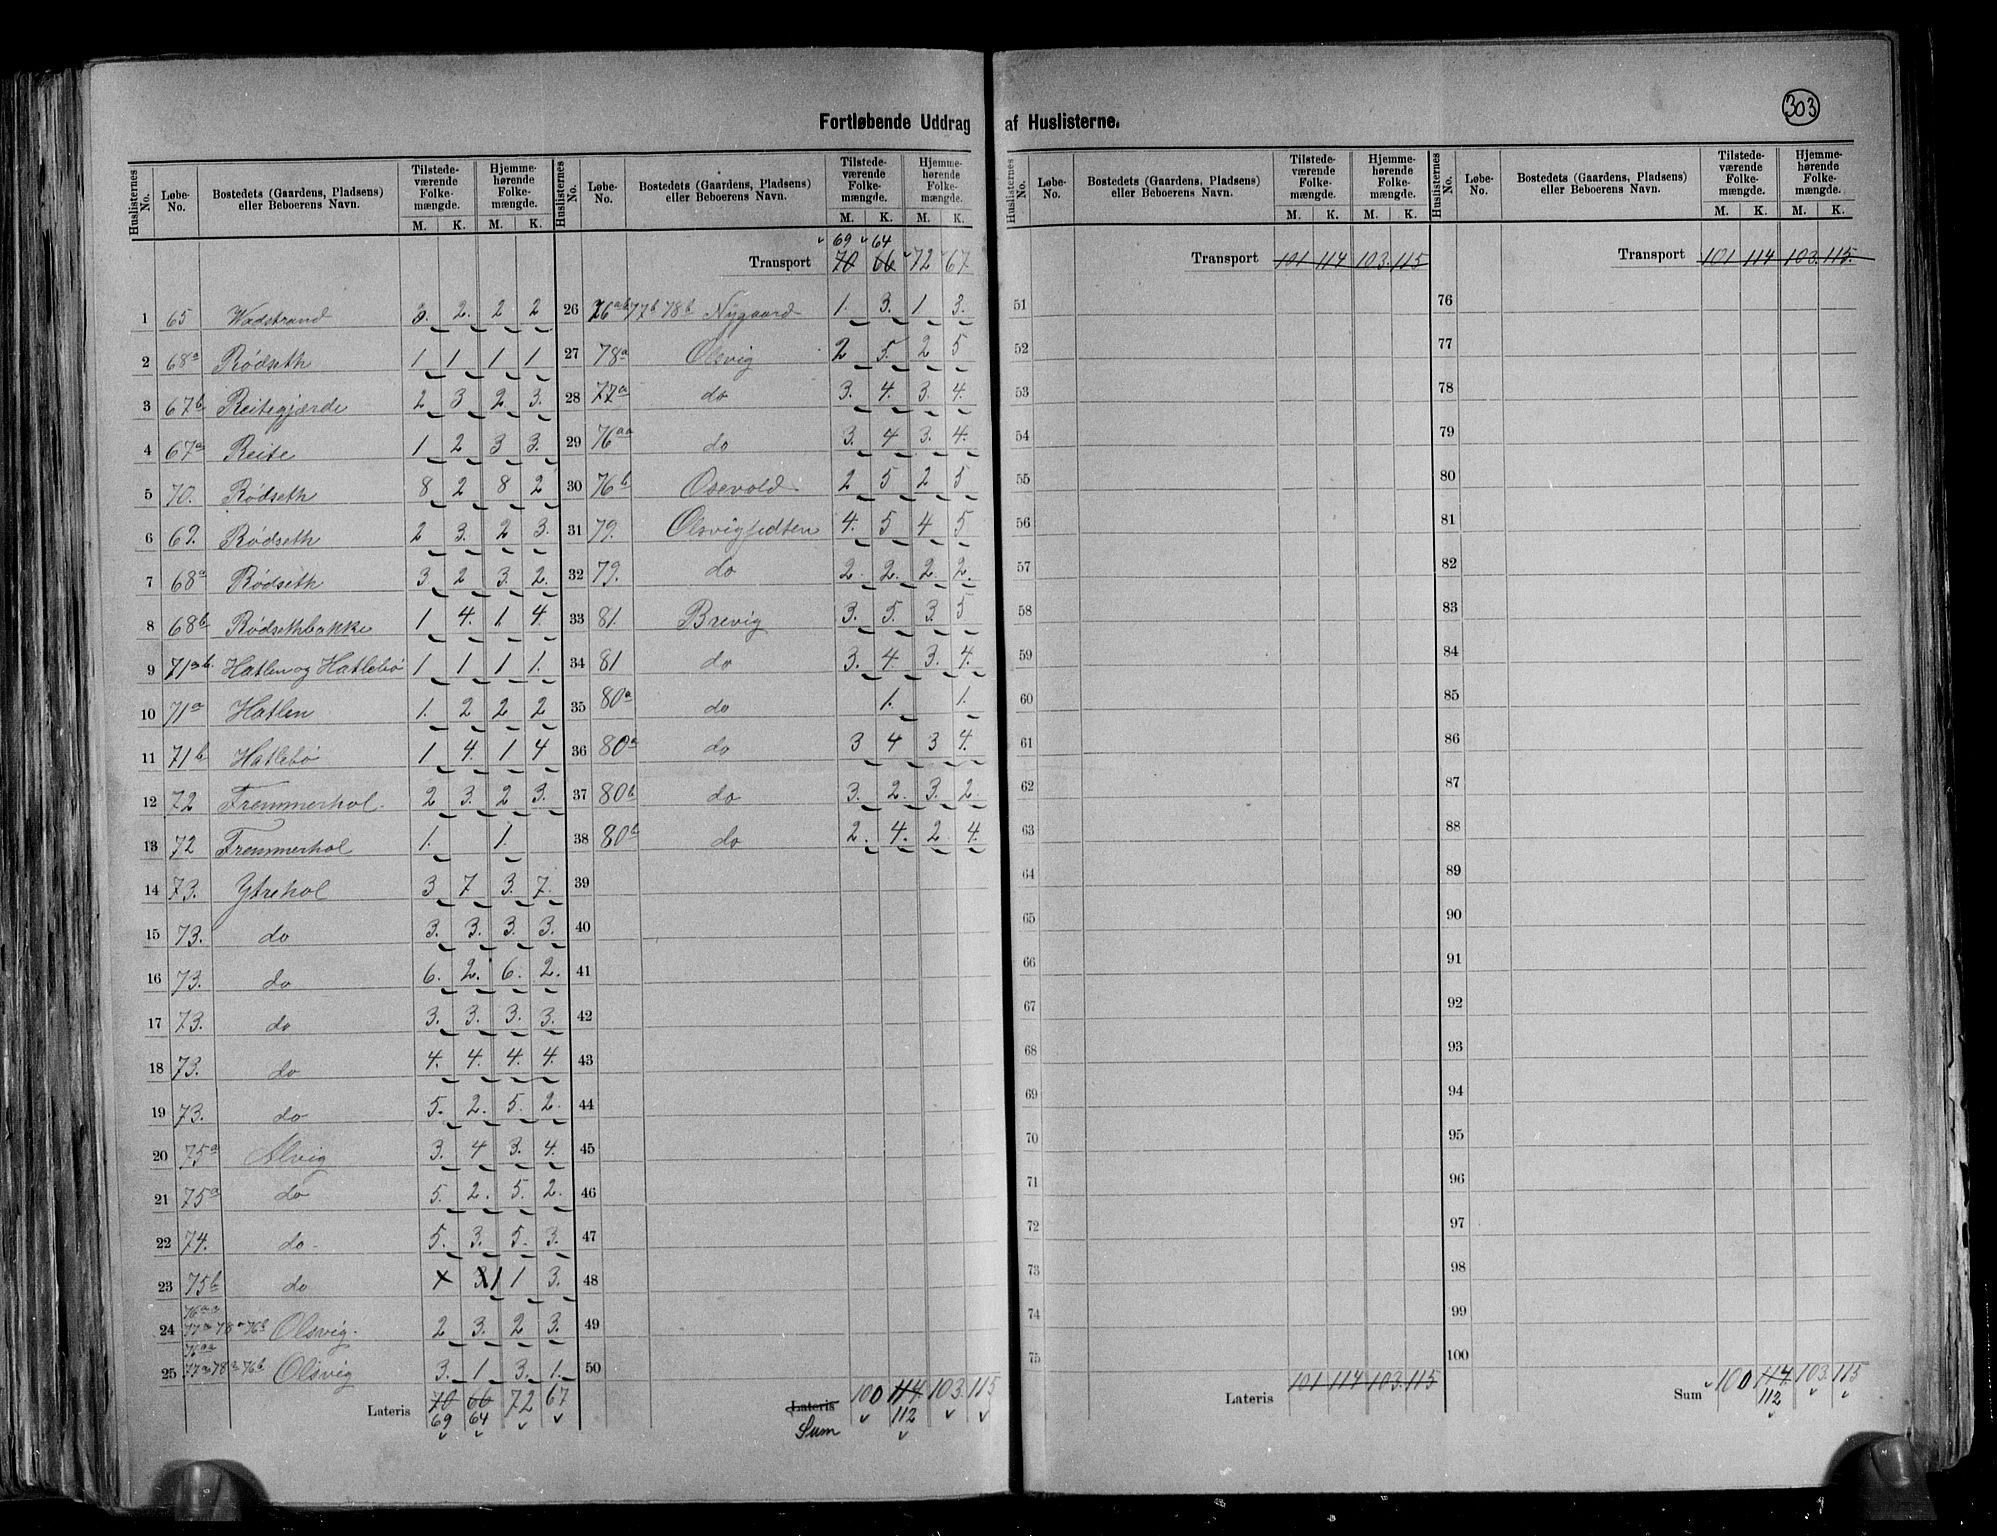 303
Fortløbende Uddrag af Huslisterne.
Huslisternes No. Løbe-No. Bostedets (Gaardens, Pladsens) eller Beboerens Navn. Tilstedeværende Folkemængde. M. K. Hjemmehørende Folkemængde. M. K.
1 65 Wadstrand 3. 2. 2 2
2 68a Rødseth 1 1 1 1
3 67b Reitegjærde 2 3 2. 3.
4 67a Reite 1 2 3 3.
5 70. Rødseth 8 2 8 2
6 69. Rødseth 2 3. 2 3.
7 68a Rødseth 3 2 3. 2.
8 68b Rødsethbakke 1 4. 1 4.
9 71ab. Hatlen og Hatlebø 1 1 1 1.
10 71a Hatlen 1. 2 2 2
11 71b Hatlebø 1 4. 1 4
12 72 Fremmerhol. 2 3. 2 3.
13 72 Fremmerhol 1. 1.
14 73. Ytrehol 3 7 3. 7.
15 73. do 3. 3. 3. 3.
16 73. do 6. 2. 6. 2.
17 73. do 3. 3. 3. 3.
18 73. do 4. 4. 4. 4.
19 73. do 5. 2. 5. 2.
20 75a Alvig 3. 4 3. 4.
21 75a do 5. 2. 5. 2.
22 74. do 5. 3. 5. 3.
23 75b do 1 3.
24 76aa 77a 78a 76b Olsvig. 2 3. 2 3.
25 76aa 77a 78a 76b Olsvig 3. 1 3. 1.
Lateris 70 66 72 67
69 64
Huslisternes No. Løbe-No. Bostedets (Gaardens, Pladsens) eller Beboerens Navn. Tilstedeværende Folkemængde. M. K. Hjemmehørende Folkemængde. M. K.
69 64
Transport 70 66 72 67.
26 76ab 77b 78b Nygaard 1. 3. 1 3.
27 78a Olsvig 2 5. 2 5
28 77a do 3. 4. 3. 4.
29 76aa do 3. 4 3. 4.
30 76b Osevold 2 5 2 5
31 79. Olsvigfidten 4. 5 4 5
32 79. do 2. 2. 2. 2.
33 81. Brevig 3. 5. 3. 5
34 81 do 3. 4. 3. 4.
35 80a do 1. 1.
36 80a do 3 4 3 4.
37 80b do 3. 2. 3. 2.
38 80b do 2. 4. 2. 4.
39
40
41
42
43
44
45
46
47
48
49
50
Lateris 100 114. 103. 115
Sum 112
Huslisternes No. Løbe-No. Bostedets (Gaardens, Pladsens) eller Beboerens Navn. Tilstedeværende Folkemængde. M. K. Hjemmehørende Folkemængde. M. K.
Transport 101 114 103. 115
51
52
53
54
55
56
57
58
59
60
61
62
63
64
65
66
67
68
69
70
71
72
73
74
75
Lateris 101 114 103. 115
Huslisternes No. Løbe-No. Bostedets (Gaardens, Pladsens) eller Beboerens Navn. Tilstedeværende Folkemængde. M. K. Hjemmehørende Folkemængde. M. K.
Transport 101 114 103. 115.
76
77
78
79
80
81
82
83
84
85
86
87
88
89
90
91
92
93
94
95
96
97
98
99
100
Sum 100 114. 103. 115
112